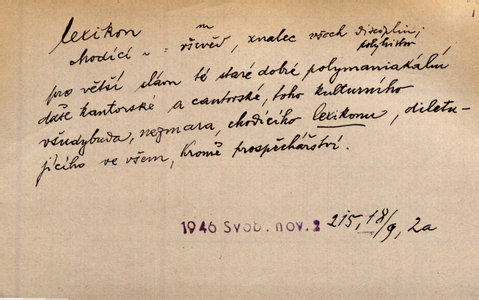 lexikon m
chodící ~ = všivěd, znalec všech disciplin;
polyhistor
pro větší slávu té staré dobré polymaniakální
duše kantorské a cantorské, toho kulturního
všudybuda, nezmara, chodícího lexikonu, diletu-
jícího ve všem, kromě prospěchářství.
1946 Svob. nov. 2 215, 18/9, 2a